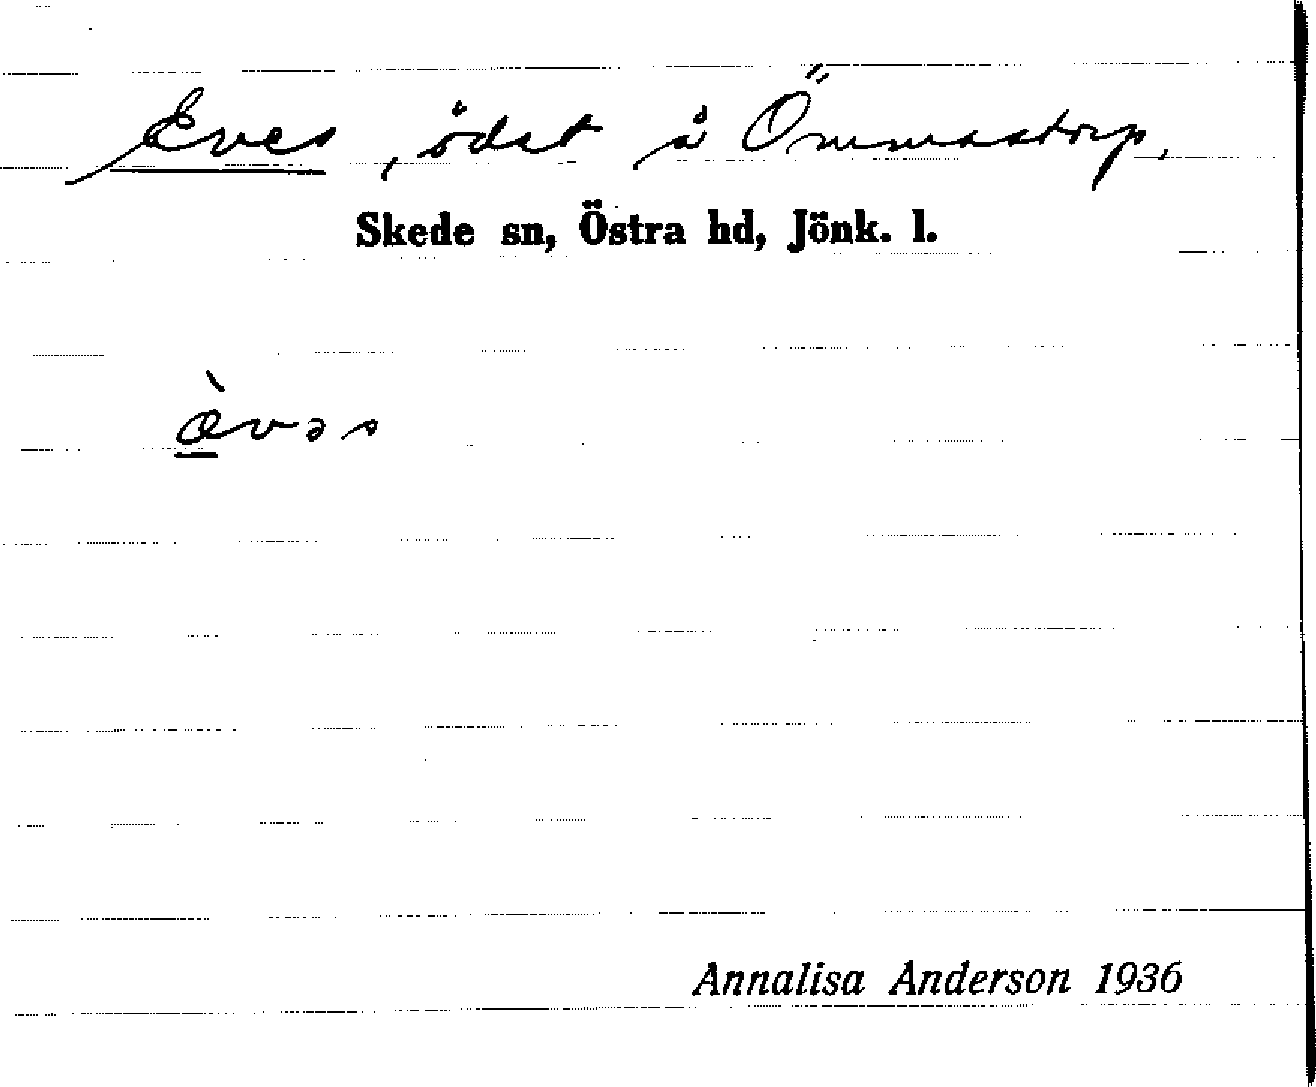 Eves, ödet å Ömmestorp,
Skede sn, Östra hd, Jönk. l.
œ̀vəs
Annalisa Anderson 1936